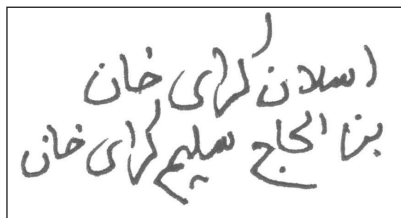 ارسلان كراى خان
بن الحاج سليم كراى خان